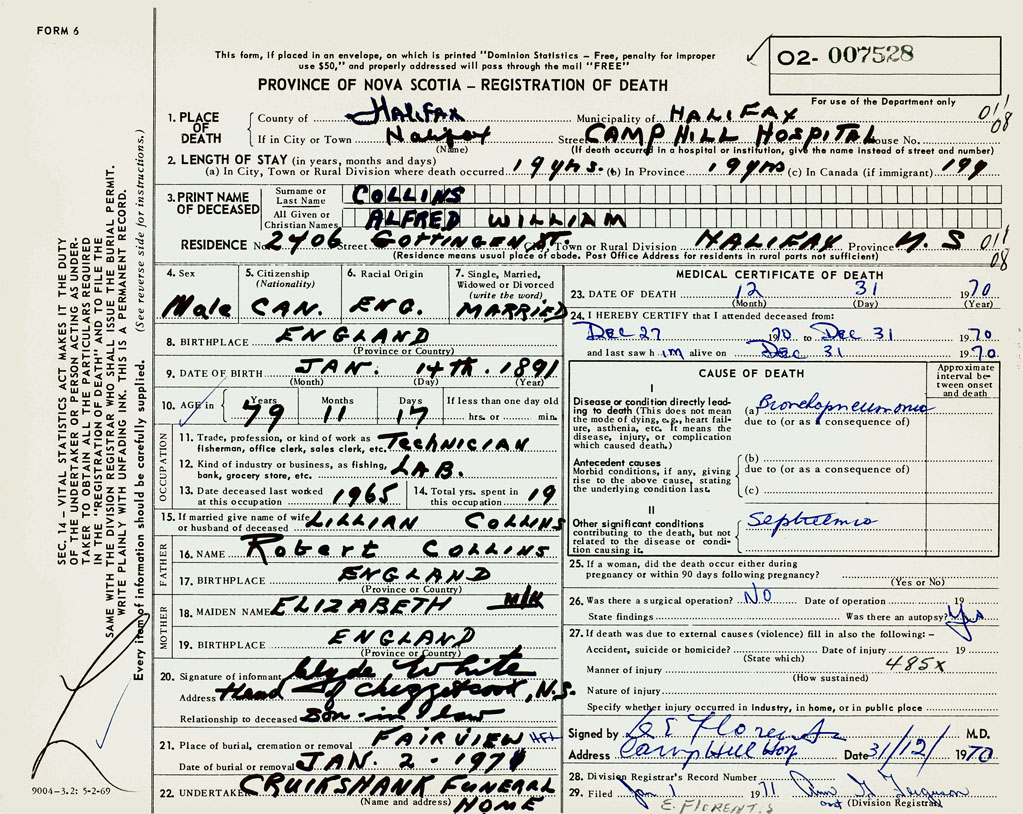 FORM 6
This form, if placed in an envelope, on which is printed "Dominion Statistics – Free, penalty for improper
use $50," and properly addressed will pass through the mail "FREE"
02- 007528
PROVINCE OF NOVA SCOTIA – REGISTRATION OF DEATH
For use of the Department only
1. PLACE OF DEATH
County of HALIFAX Municipality of HALIFAX 011
08
If in City or Town Halifax Street CAMP HILL HOSPITAL House No.
(Name) (If death occurred in a hospital or institution, give the name instead of street and number)
2. LENGTH OF STAY (in years, months and days)
(a) In City, Town or Rural Division where death occurred 19 yrs. (b) In Province 19 yrs (c) In Canada (if immigrant) 19y
3. PRINT NAME OF DECEASED
Surname or Last Name COLLINS
All Given or Christian Names ALFRED WILLIAM
RESIDENCE No. 2406 Street GOTTINGEN ST City, Town or Rural Division HALIFAX Province N.S 011
08
(Residence means usual place of abode. Post Office Address for residents in rural parts not sufficient)
4. Sex
Male
5. Citizenship
(Nationality)
CAN.
6. Racial Origin
ENG.
7. Single, Married,
Widowed or Divorced
(write the word)
MARRIED
8. BIRTHPLACE ENGLAND
(Province or Country)
9. DATE OF BIRTH JAN. 14th. 1891
(Month) (Day) (Year)
10. AGE in Years 79 Months 11 Days 17 If less than one day old
hrs. or min.
OCCUPATION
11. Trade, profession, or kind of work as
fisherman, office clerk, sales clerk, etc. Technician
12. Kind of industry or business, as fishing,
bank, grocery store, etc. LAB.
13. Date deceased last worked
at this occupation 1965
14. Total yrs. spent in
this occupation 19
15. If married give name of wife
or husband of deceased LILLIAN COLLINS
FATHER
16. NAME Robert COLLINS
17. BIRTHPLACE ENGLAND
(Province or Country)
MOTHER
18. MAIDEN NAME ELIZABETH N/K
19. BIRTHPLACE ENGLAND
(Province or Country)
20. Signature of informant Clyde White
Address Head of Chezzetcook, N.S.
Relationship to deceased Son-in-law
21. Place of burial, cremation or removal FAIRVIEW HFX
Date of burial or removal JAN. 2 - 1971
22. UNDERTAKER CRUIKSHANK FUNERAL
(Name and address) HOME
MEDICAL CERTIFICATE OF DEATH
23. DATE OF DEATH 12 31 1970
(Month) (Day) (Year)
24. I HEREBY CERTIFY that I attended deceased from:
Dec 27 1970 to Dec 31 1970
and last saw him alive on Dec 31 1970
CAUSE OF DEATH
Approximate
interval be-
tween onset
and death
I
Disease or condition directly lead-
ing to death (This does not mean
the mode of dying, e.g., heart fail-
ure, asthenia, etc. It means the
disease, injury, or complication
which caused death.)
(a) Bronchopneumonia
due to (or as a consequence of)
Antecedent causes
Morbid conditions, if any, giving
rise to the above cause, stating
the underlying condition last.
(b)
due to (or as a consequence of)
(c)
II
Other significant conditions
contributing to the death, but not
related to the disease or condi-
tion causing it.
25. If a woman, did the death occur either during
pregnancy or within 90 days following pregnancy?
(Yes or No)
26. Was there a surgical operation? NO Date of operation 19
State findings Was there an autopsy? Yes
27. If death was due to external causes (violence) fill in also the following: –
Accident, suicide or homicide? Date of injury 19
(State which)
Manner of injury 485X
(How sustained)
Nature of injury
Specify whether injury occurred in industry, in home, or in public place
Signed by M.D.
Address Camp Hill Hosp Date 31/12/1970
28. Division Registrar's Record Number
29. Filed Jan 1 1971 Ferguson
(Division Registrar)
E. FLORENTIS
SEC. 14 – VITAL STATISTICS ACT MAKES IT THE DUTY
OF THE UNDERTAKER OR PERSON ACTING AS UNDER-
TAKER TO OBTAIN ALL THE PARTICULARS REQUIRED
IN THE "REGISTRATION OF DEATH" AND TO FILE THE
SAME WITH THE DIVISION REGISTRAR WHO SHALL ISSUE THE BURIAL PERMIT.
WRITE PLAINLY WITH UNFADING INK. THIS IS A PERMANENT RECORD.
Every item of information should be carefully supplied. (See reverse side for instructions.)
9004-3.2: 5-2-69